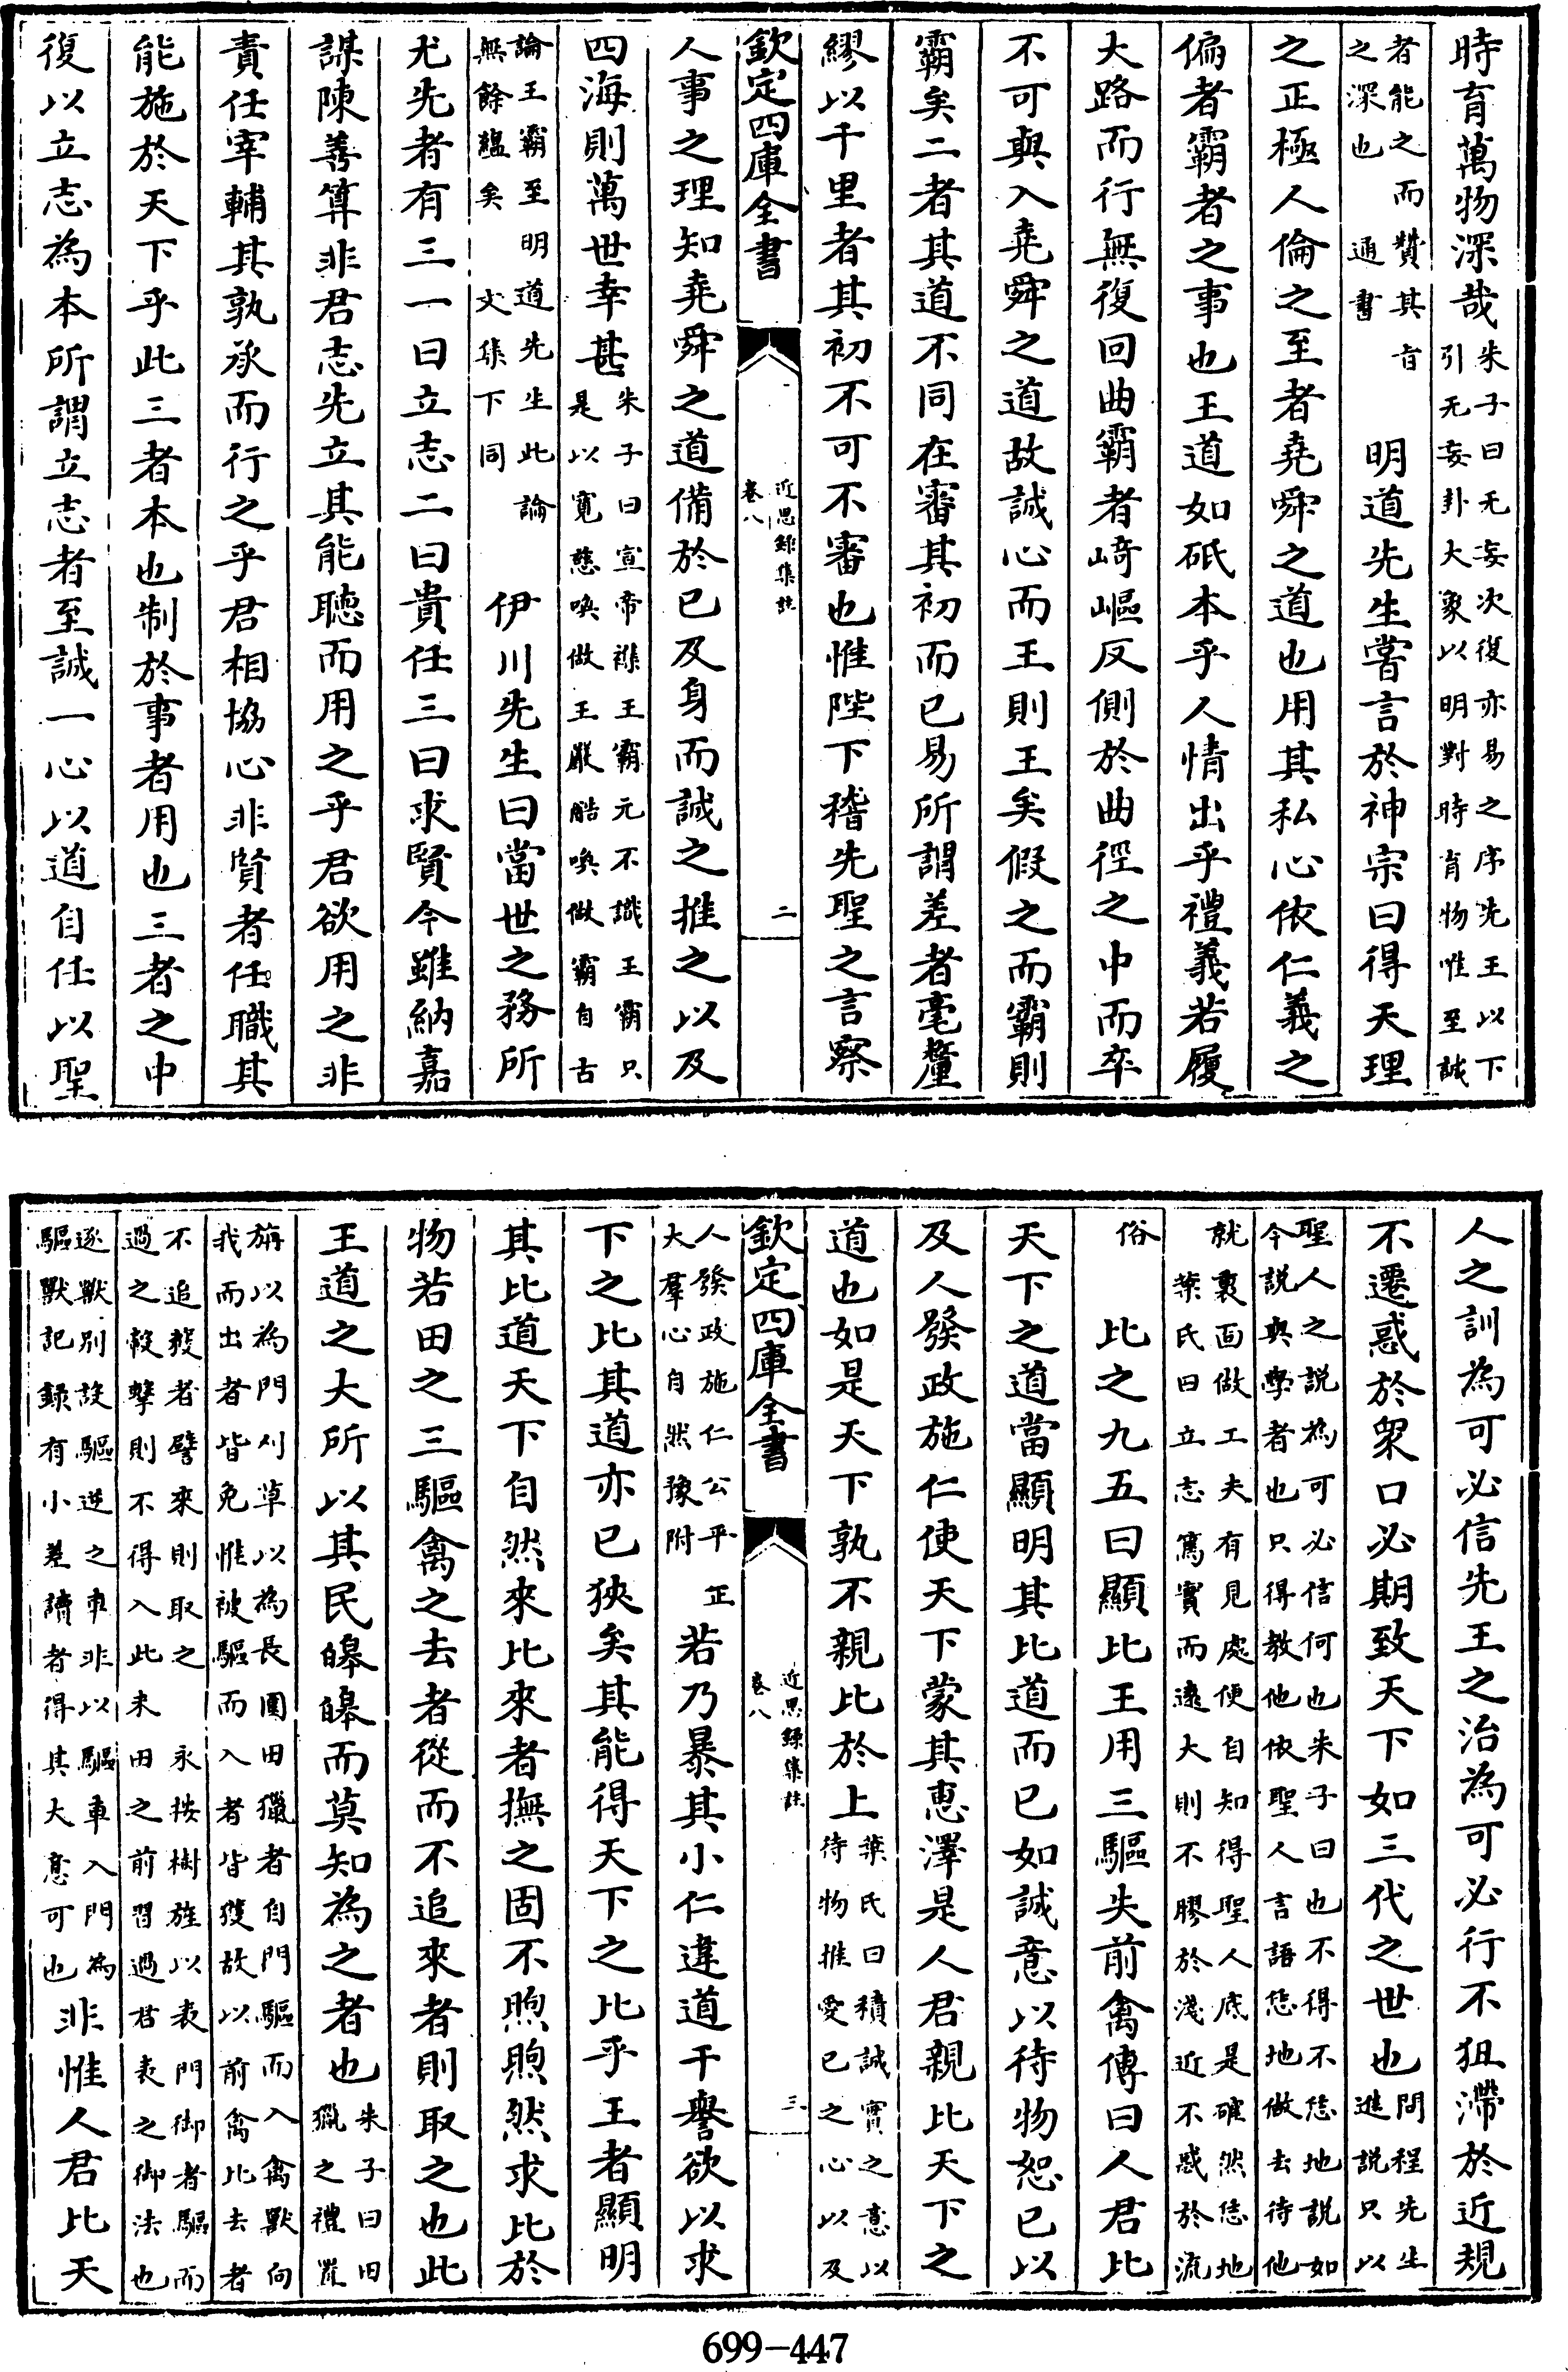 時育萬物深哉朱子曰无妄次復亦易之序先王以下引无妄卦大象以明對時育物惟至誠
者能之而贊其旨之深也 通書 明道先生嘗言於神宗曰得天理
之正極人倫之至者堯舜之道也用其私心依仁義之
偏者霸者之事也王道如砥本乎人情出乎禮義若履
大路而行無復回曲霸者﨑嶇反側於曲徑之中而卒
不可與入堯舜之道故誠心而王則王矣假之而霸則
霸矣二者其道不同在審其初而已易所謂差若毫釐
繆以千里者其初不可不審也惟陛下稽先聖之言察
欽定四庫全書 近思録集註 卷八 二
人事之理知堯舜之道備於已及身而誠之推之以及
四海則萬世幸甚朱子曰宣帝襍王霸元不識王霸只是以寛慈喚做王嚴酷喚做霸自古
論王霸至明道先生此論無餘藴矣 文集下同 伊川先生曰當世之務所
尤先者有三一曰立志二曰責任三曰求賢今雖納嘉
謀陳善算非君志先立其能聽而用之乎君欲用之非
責任宰輔其孰承而行之乎君相協心非賢者任職其
能施於天下乎此三者本也制於事者用也三者之中
復以立志為本所謂立志者至誠一心以道自任以聖
人之訓為可必信先王之治為可必行不狃滯於近規
不遷惑於衆口必期致天下如三代之世也問程先生進説只以
聖人之説為可必信何也朱子曰也不得不恁地説如今説與學者也只得教他依聖人言語恁地做去待他
就裏面做工夫有見處便自知得聖人底是確然恁地 葉氏曰立志篤實而遠大則不膠於淺近不惑於流
俗 比之九五曰顯比王用三驅失前禽傳曰人君比
天下之道當顯明其比道而已如誠意以待物恕已以
及人發政施仁使天下蒙其惠澤是人君親比天下之
道也如是天下孰不親比於上葉氏曰積誠實之意以待物推愛已之心以及
欽定四庫全書 近思録集註 卷八 三
人發政施仁公平正大羣心自然豫附 若乃暴其小仁違道干譽欲以求
下之比其道亦已狹矣其能得天下之比乎王者顯明
其比道天下自然來比來者撫之固不煦煦然求比於
物若田之三驅禽之去者從而不追來者則取之也此
王道之大所以其民皥皥而莫知為之者也朱子曰田獵之禮置
旃以為門刈草以為長圍田獵者自門驅而入禽獸向我而出者皆免惟被驅而入者皆獲故以前禽比去者
不追獲者譬來則取之 永按樹旌以表門御者驅而過之轂擊則不得入此未田之前習過君表之御法也
逐獸别設驅逆之車非以驅車入門為驅獸記録有小差讀者得其大意可也非惟人君比天
699-447